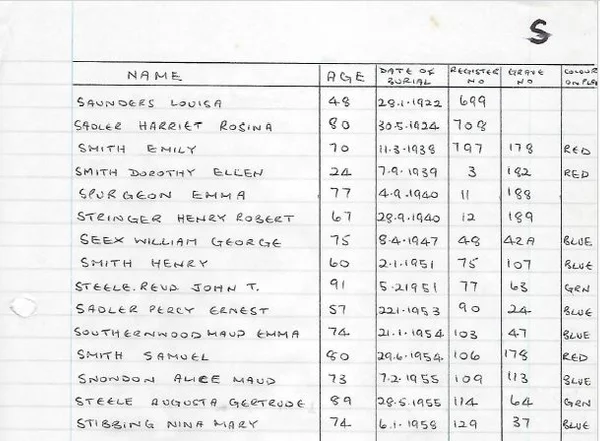 S
NAME AGE DATE OF BURIAL REGISTER NO GRAVE NO COLOUR ON PLA
SAUNDERS LOUISA 48 28.1.1922 699
SADLER HARRIET ROSINA 80 30.5.1924 708
SMITH EMILY 70 11.3.1938 797 178 RED
SMITH DOROTHY ELLEN 24 7.9.1939 3 182 RED
SPURGEON EMMA 77 4.9.1940 11 188
STRINGER HENRY ROBERT 67 28.9.1940 12 189
SEEX WILLIAM GEORGE 75 8.4.1947 48 42A BLUE
SMITH HENRY 60 2.1.1951 75 107 BLUE
STEELE.REVD JOHN T. 91 5.21951 77 63 GRN
SADLER PERCY ERNEST 57 22.1.1953 90 24 BLUE
SOUTHERNWOOD MAUD EMMA 74 21.1.1954 103 47 BLUE
SMITH SAMUEL 80 29.6.1954 106 178 RED
SNONDON ALICE MAUD 73 7.2.1955 109 113 BLUE
STEELE AUGUSTA GERTRUDE 89 28.5.1955 114 64 GRN
STIBBING NINA MARY 74 6.1.1958 129 37 BLUE